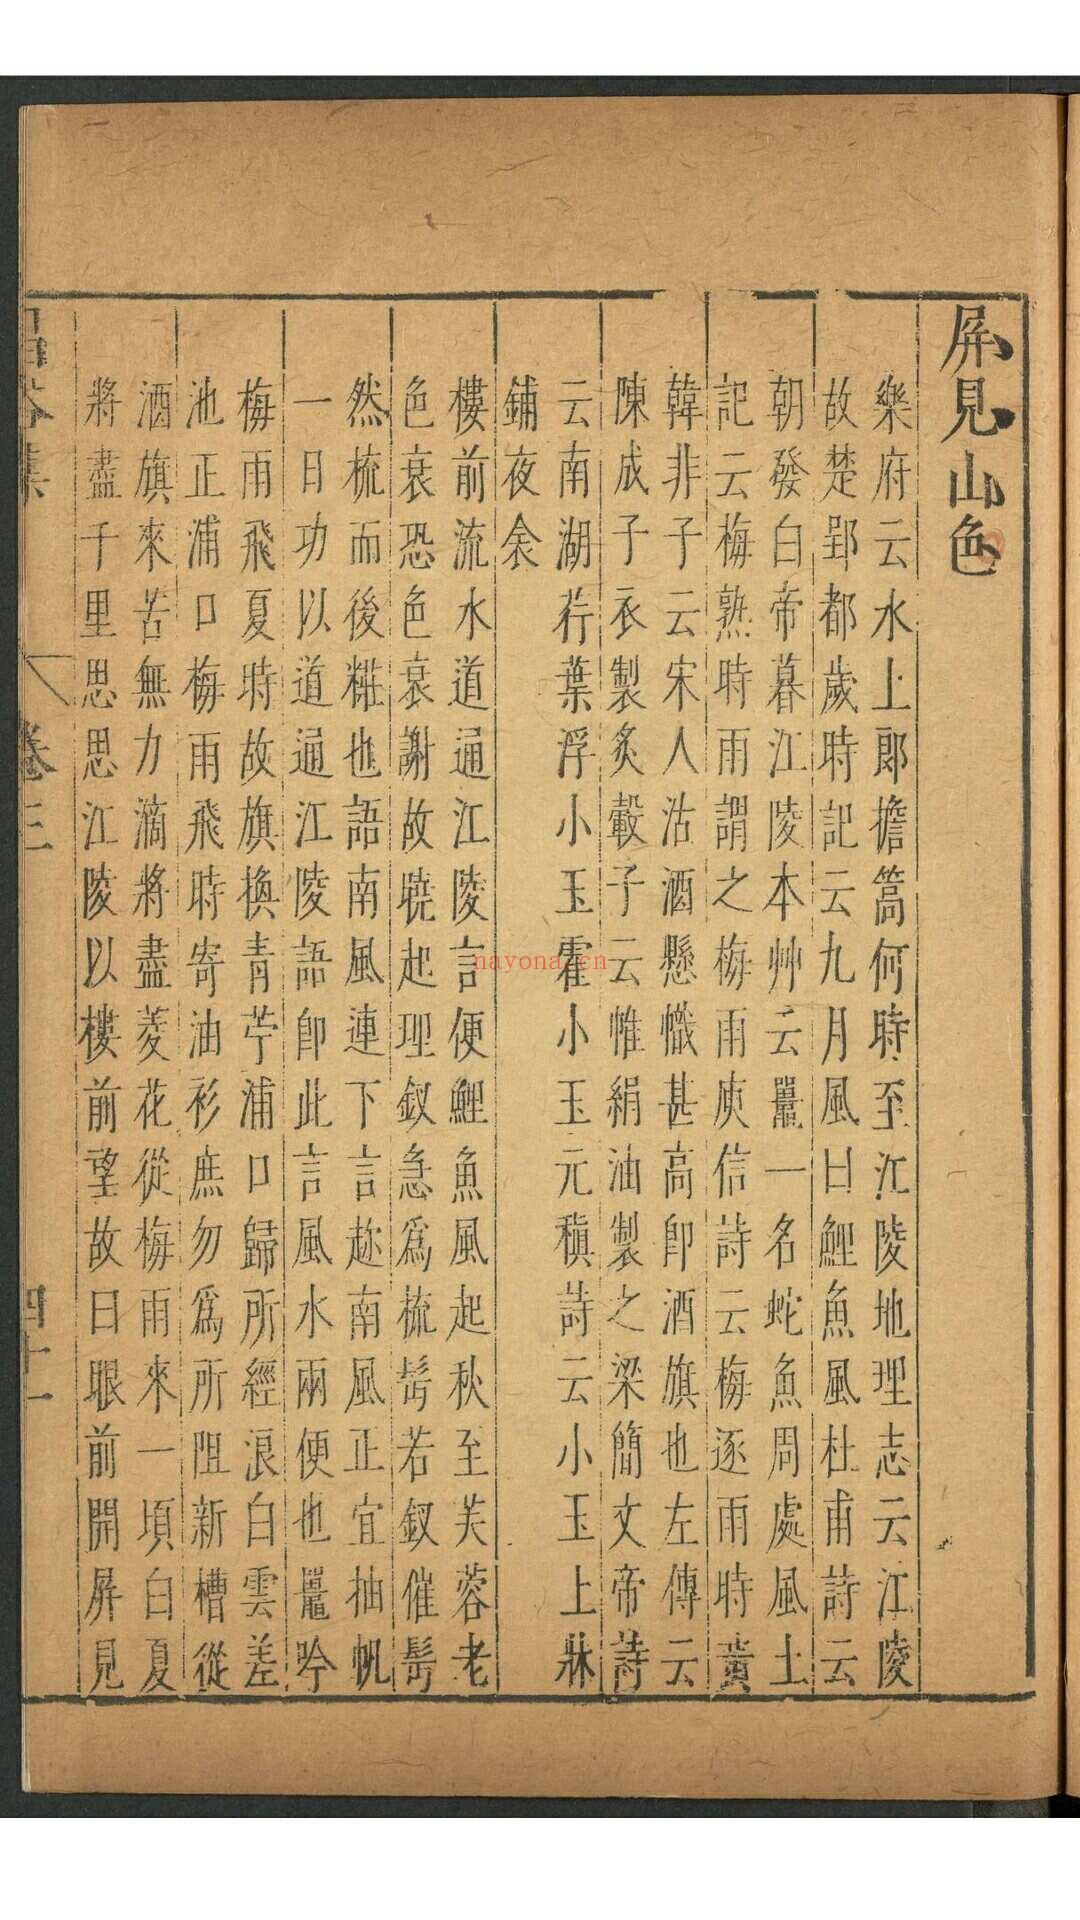 屏見山色
樂府云水上郎擔篙何時至江陵地理志云江陵
故楚郢都歲時記云九月風曰鯉魚風杜甫詩云
朝發白帝暮江陵本艸云鼉一名蛇魚周處風土
記云梅熟時雨謂之梅雨庾信詩云梅逐雨時黃
韓非子云宋人沽酒懸幟甚高卽酒旗也左傳云
陳成子衣製炙轂子云惟絹油製之梁簡文帝詩
云南湖荇葉浮小玉霍小玉元稹詩云小玉上牀
鋪夜衾
樓前流水道通江陵言便鯉魚風起秋至芙蓉老
色衰恐色衰謝故曉起理釵急爲梳髩若釵催髩
然梳而後糚也語南風連下言趂南風正宜抽帆
一日功以道通江陵語卽此言風水兩便也鼉吟
梅雨飛夏時故旗換青苧浦口歸所經浪白雲差
池正浦口梅雨飛時寄油衫庶勿爲所阻新槽從
酒旗來苦無力滴將盡菱花從梅雨來一頃白夏
將盡千里思思江陵以樓前望故曰眼前開屏見
昌谷集
卷三
四十一
nayona.cn